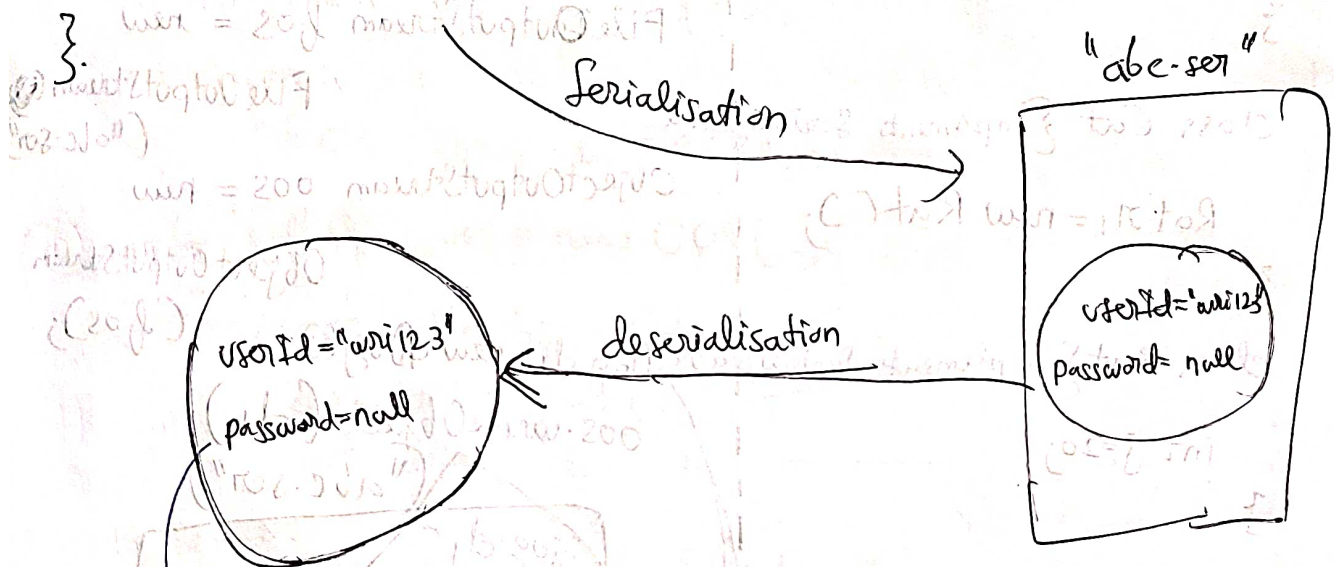 }.
Serialisation
"abc.ser"
userId="uri123"
password=null
deserialisation
userId="uri123"
password=null